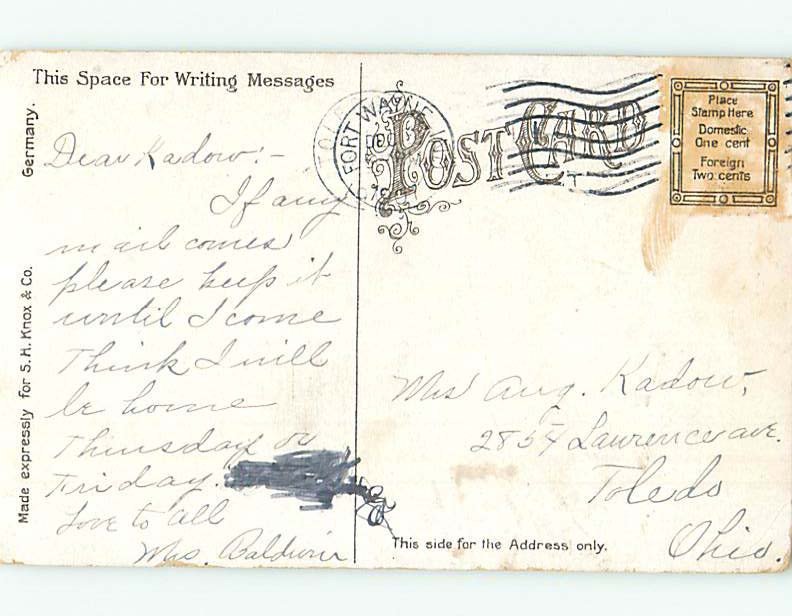 This Space For Writing Messages
Germany.
Made expressly for S.H. Knox & Co.
Dear Kadow:-
If any
mail comes
please keep it
until I come
Think I will
be home
Thursday or
Friday.
Love to all
Mrs. Baldwin
FORT WAYNE
POST CARD
Place
Stamp Here
Domestic
One cent
Foreign
Two cents
Mrs Aug. Kadow,
2854 Lawrence ave.
Toledo
Ohio.
This side for the Address only.